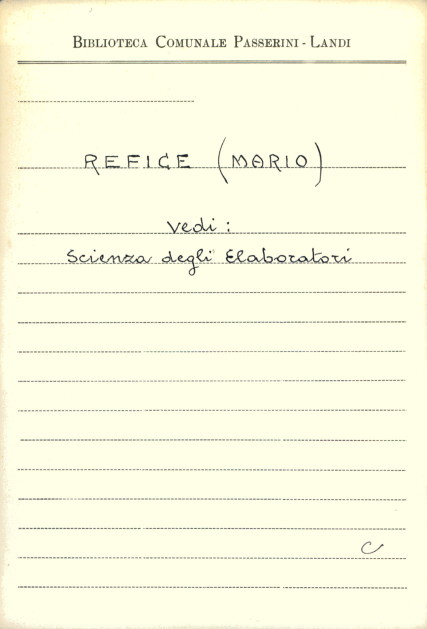 BIBLIOTECA COMUNALE PASSERINI - LANDI
REFICE (MARIO)
vedi :
Scienza degli Elaboratori
C